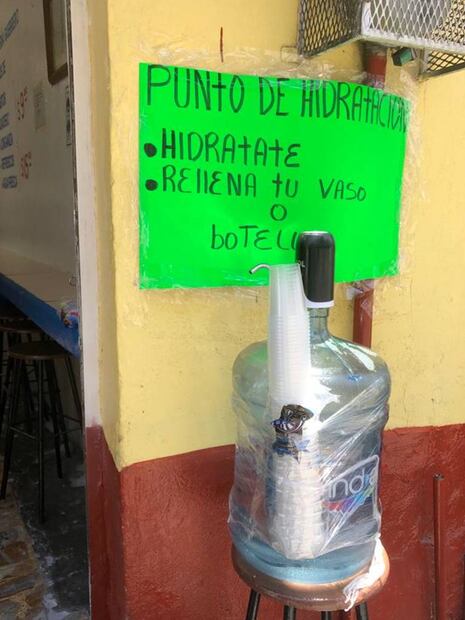 PUNTO DE HIDRATACION
• HIDRATATE
• RELLENA TU VASO
O
BOTELL